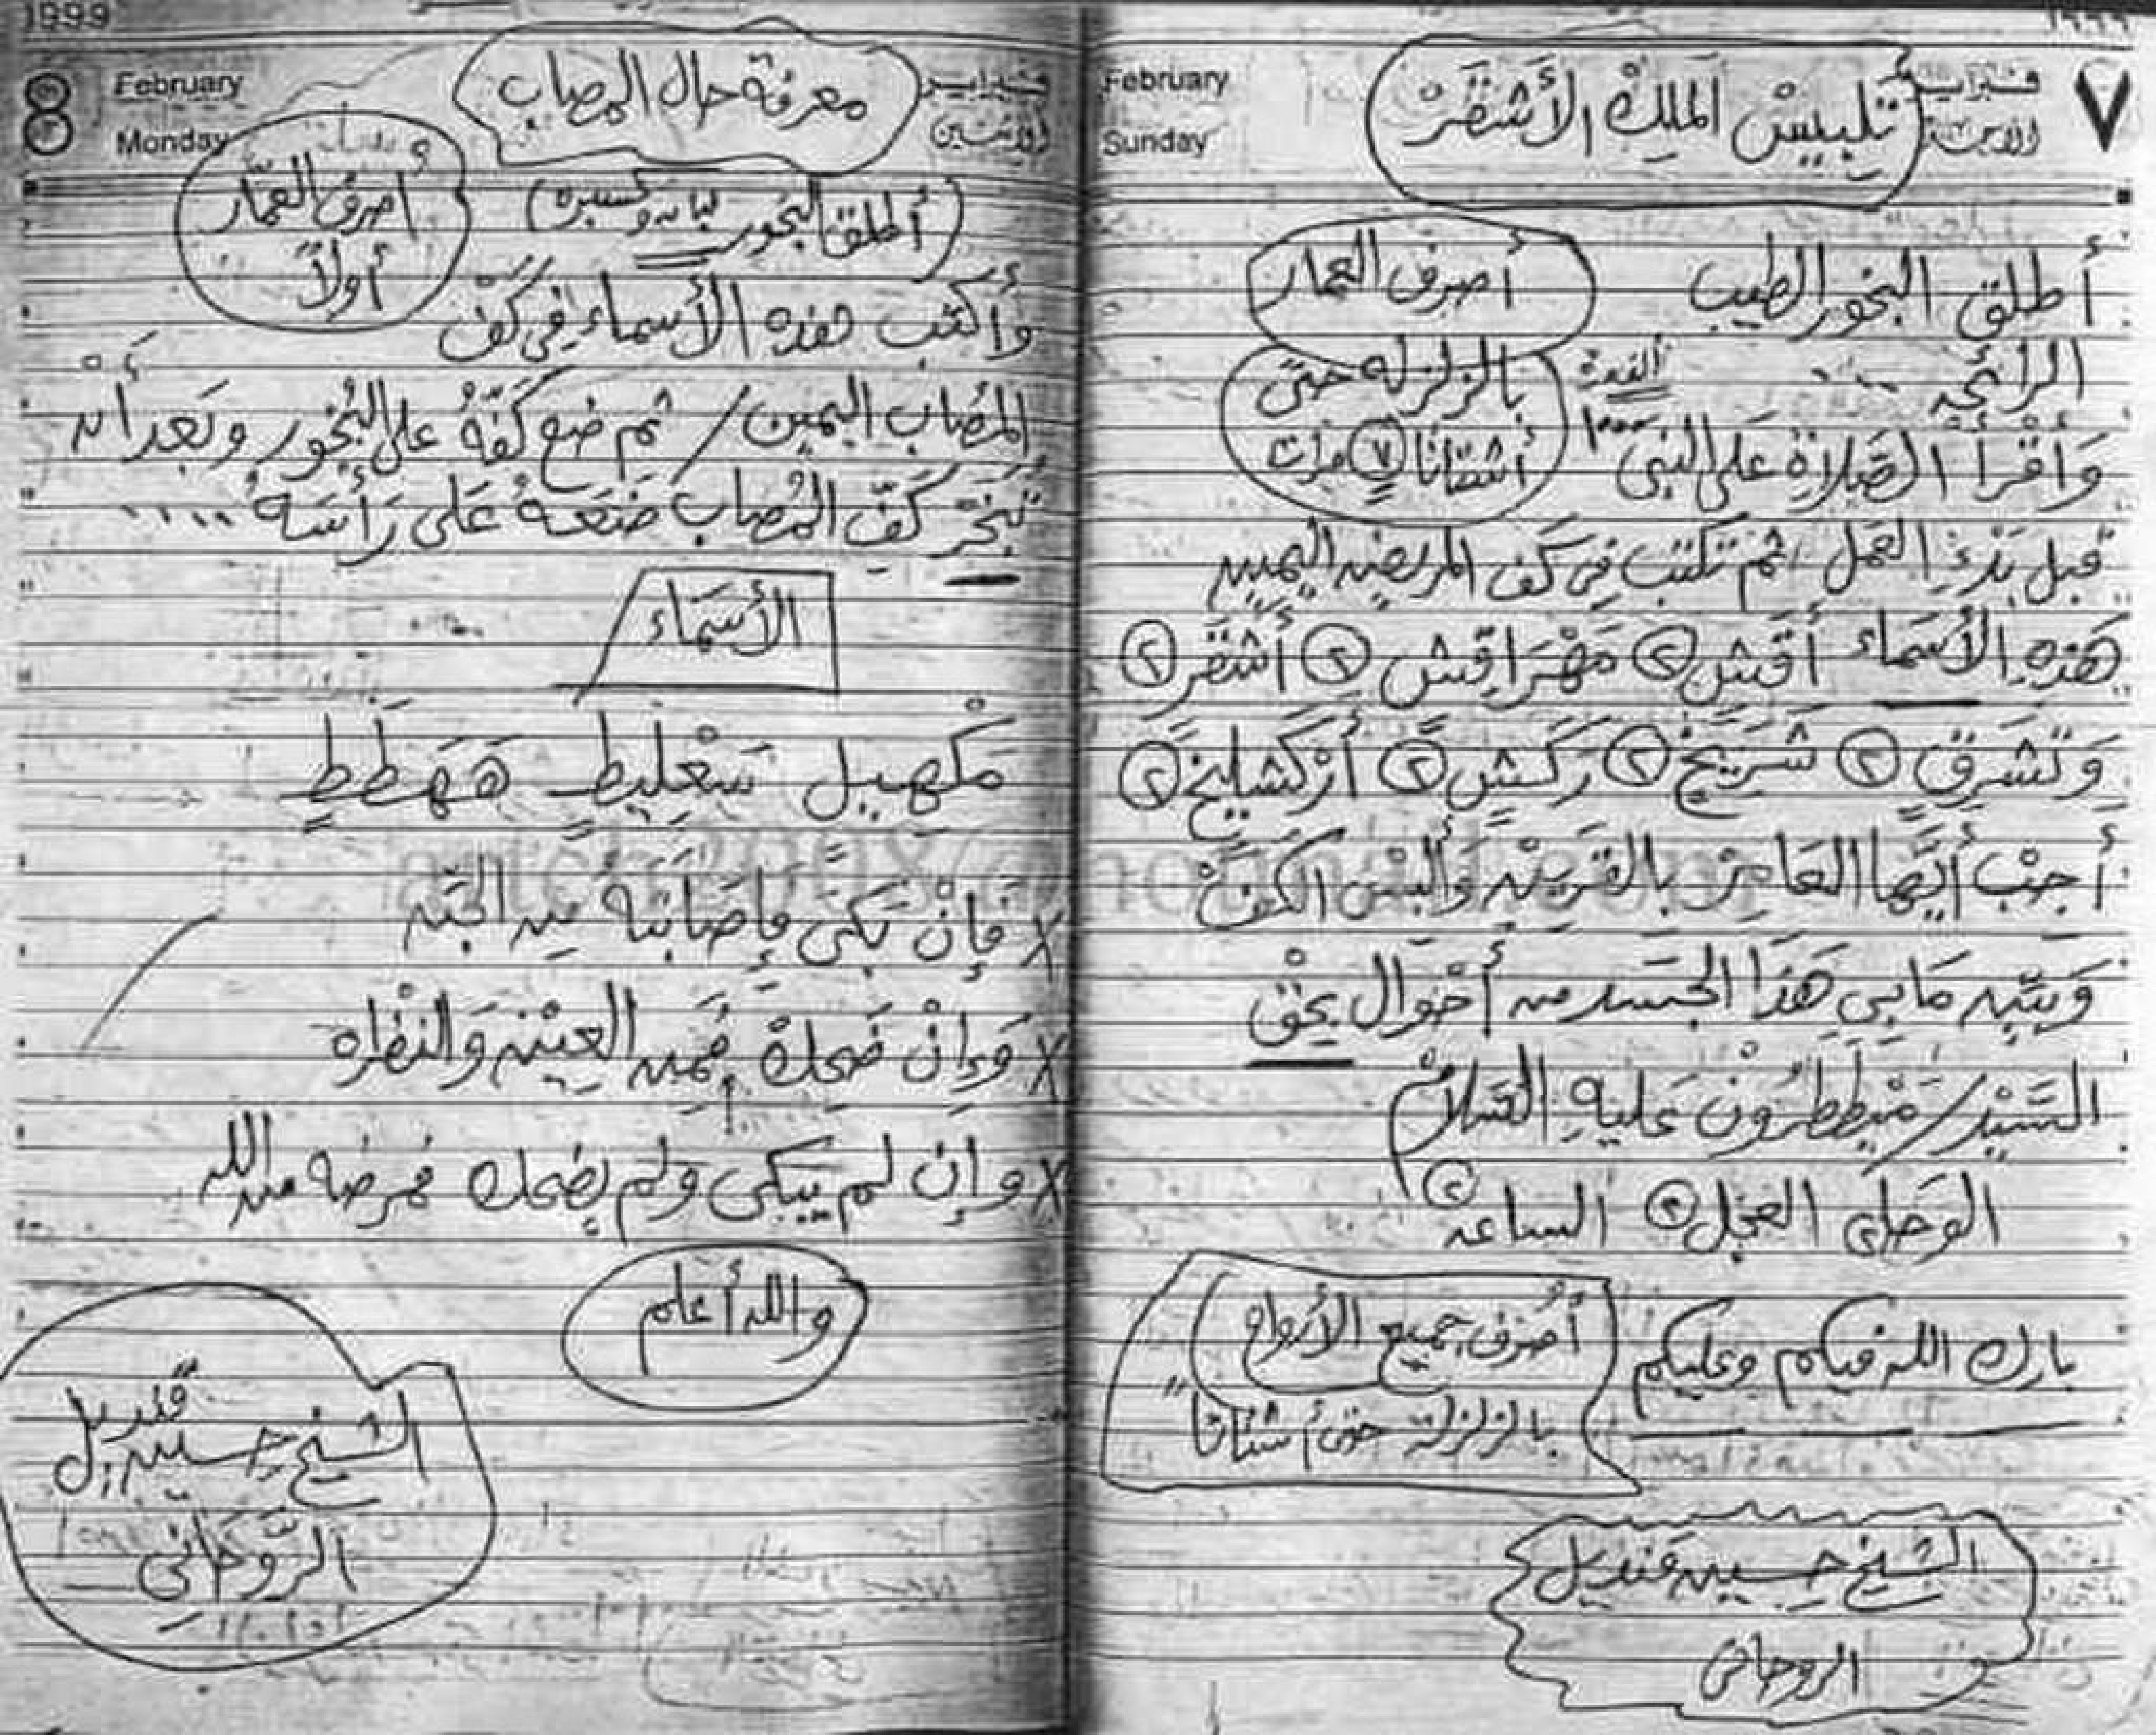 ١٩٩٩
February
Sunday
فبراير
الأحد
٧
تلبيسْ المَلِكْ الأَشْقَرْ
أطلق البخور الطيب
الرائحه
أصرف العمار
بالزلزله حتى
أشتاتا ٧ مرات
وَأقْرأ الصَلاةِ عَلى النبى ١٠٠٠
قبل بَدْءِ العَمل ثم تكتب فى كَف المريض اليمين
هَذِهِ الأسمَاء أَقَش ٢ مَهْرَاقِش ٢ أَشْقَر ٢
وَتَشرِق ٢ شَريخ ٢ رَكَش ٢ أَرْكَشليخ ٢
أَجِبْ أيّهَا العَامِرْ بالقَرينْ وَألبْسْ الكَفْ
وَبَيّن مَا بِي هَذا الجَسَد من أَحْوَال بِحْق
السَيْد / مَيْطَطِرُونْ عَليهِ السَلامْ
الوَحا ٢ العَجل ٢ الساعه ٢
بارك الله فيكم وعليكم
أصْرف جميع الأرواح
بالزلزلة حتى أشتاتا
الشيخ حسين قنديل
الروحانى
1999
8
February
Monday
فبراير
الاثنين
معرفة حال المصاب
أصرف العمّار
أولاً
(أطلق البخور لبان وكسبره)
وأكتب هذه الأسماء فِي كَفْ
المُصَاب اليمين / ثم ضع كَفّهُ على البُخور وبَعد أَنْ
تُبَخّر كَفّ المُصاب ضَعَهُ عَلى رَأسَهُ ....
الأسمَاء
مَكْهِيل سَعْلِيطٍ هَهَطَطٍ
x فَإِنْ بَكَى فإصَابَتهُ مِن الجَن
x وَإِنْ ضَحِكْ فَمِن العِيْنْ وَالنظْره
x وإن لم يَبكى ولم يضحك فمرضه من الله
والله أعلم
الشيخ حسين قنديل
الرّوحَانِي